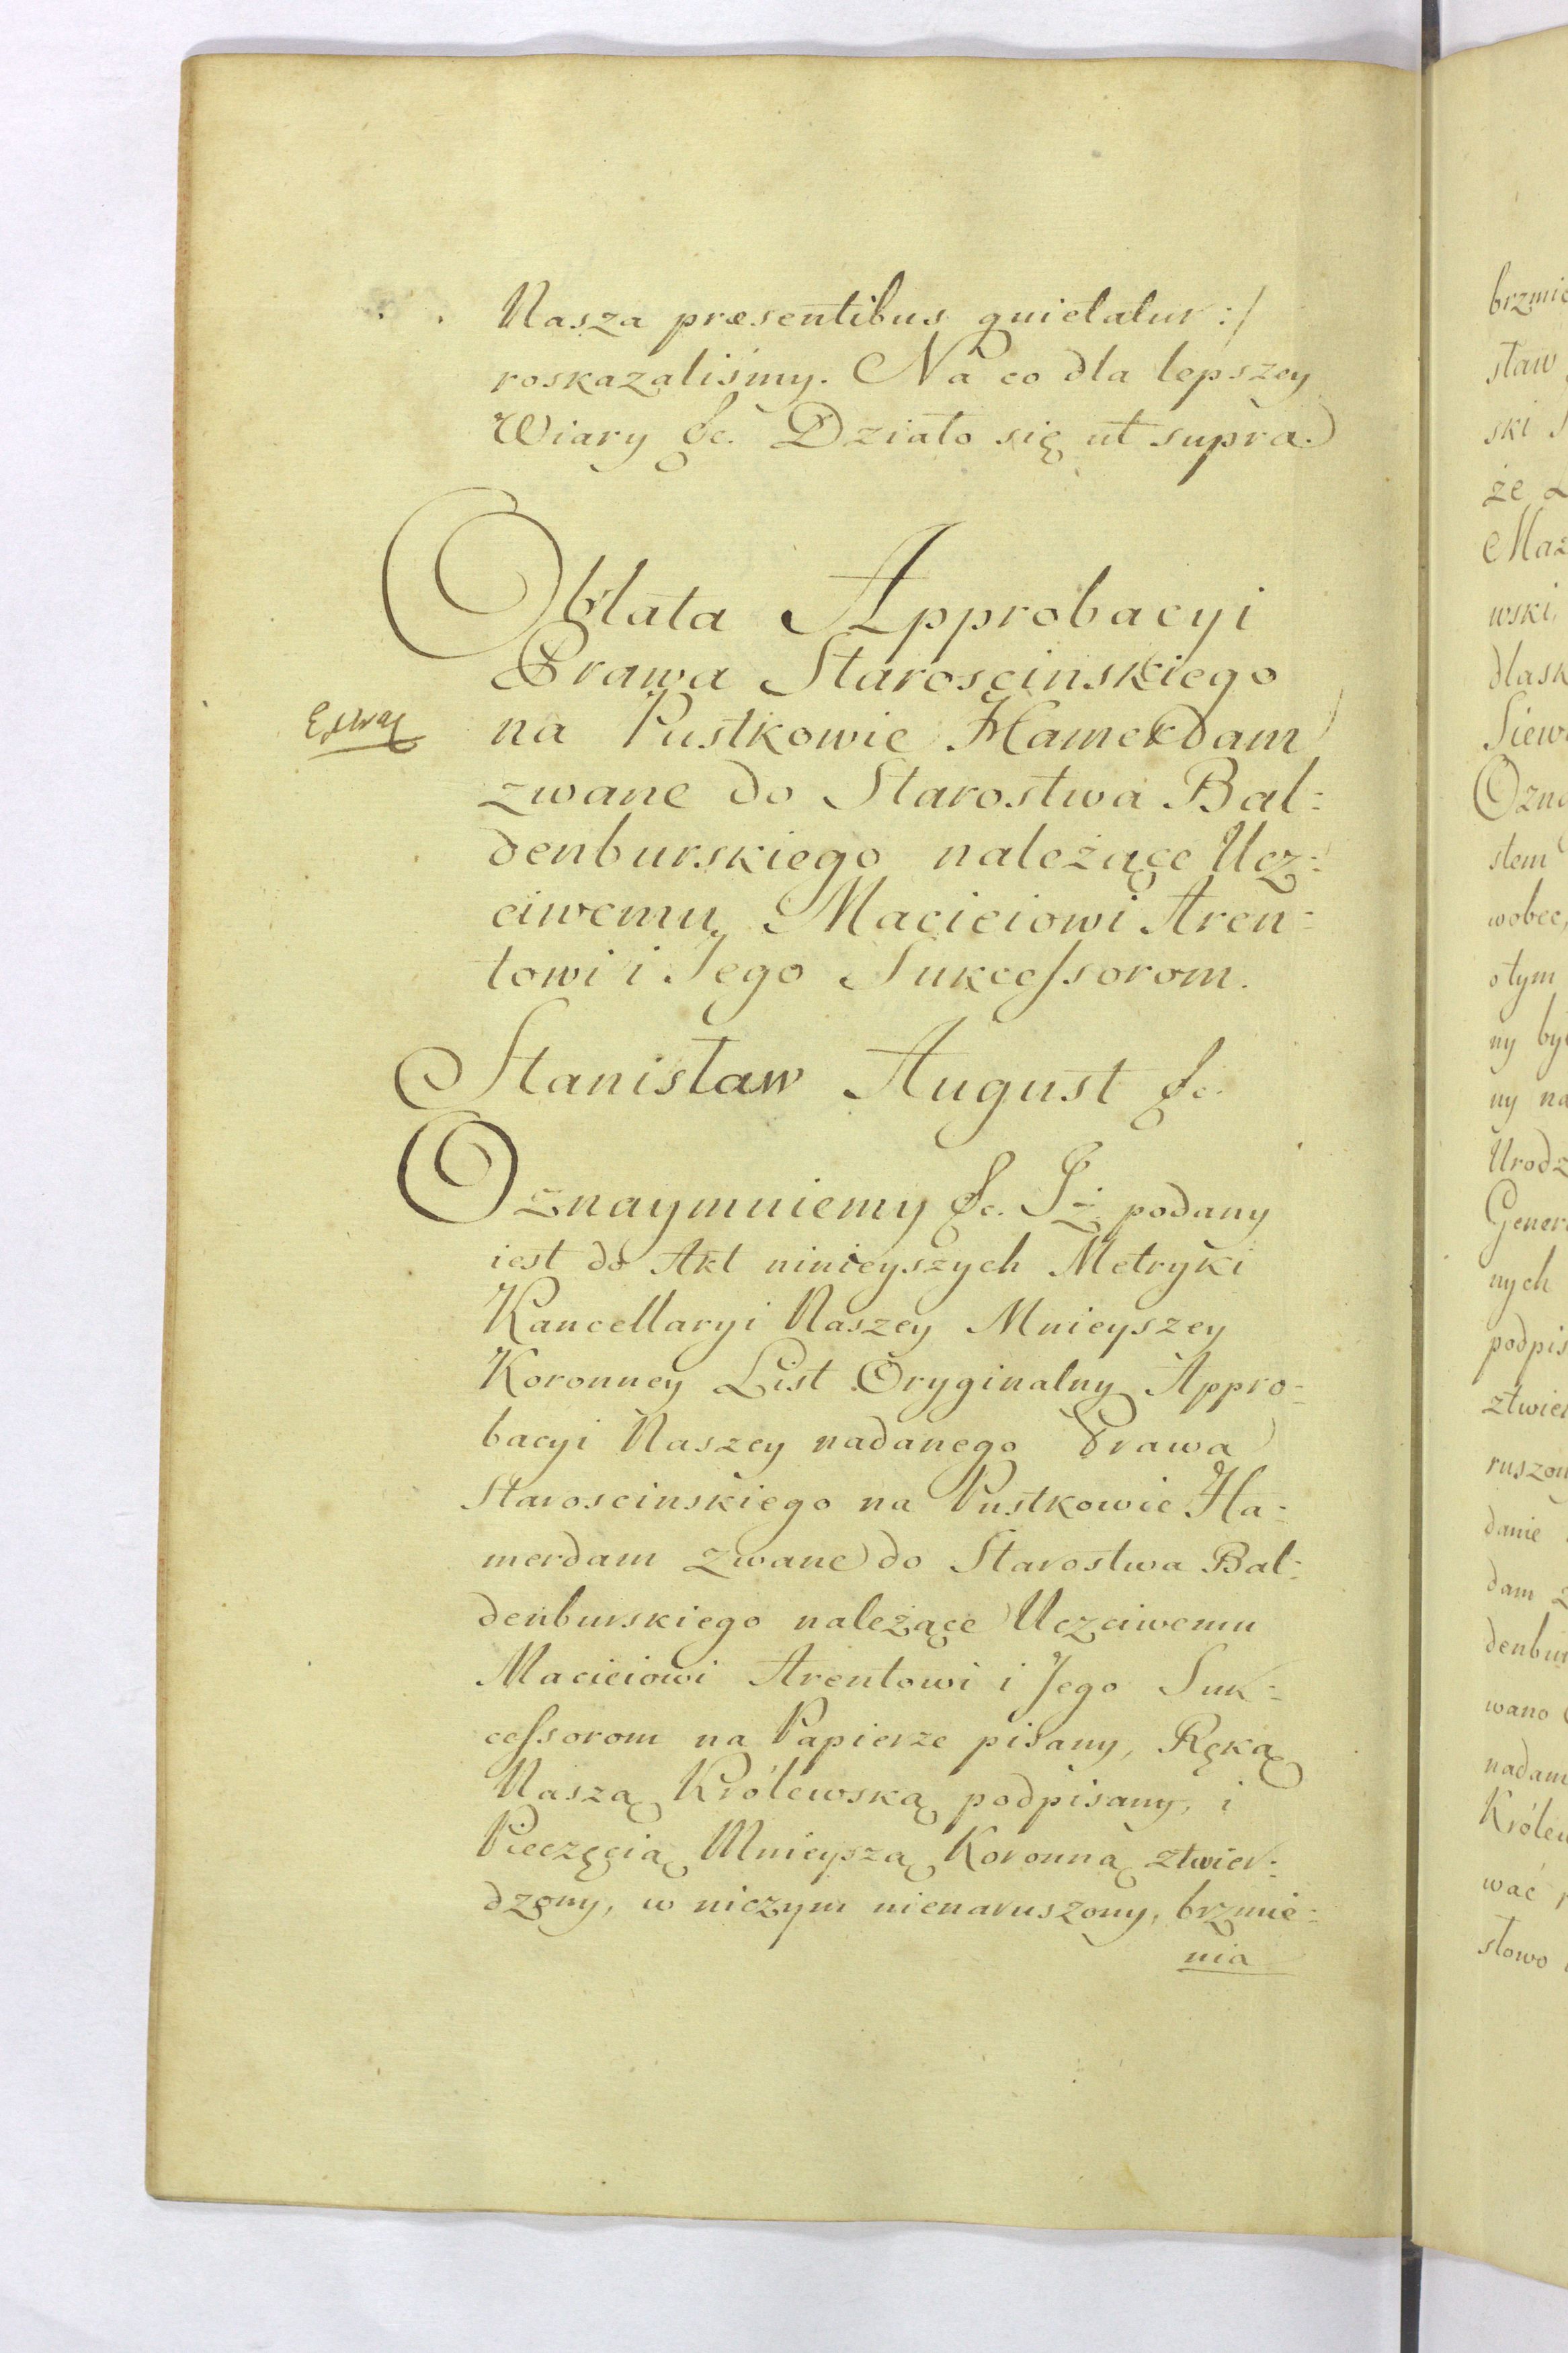 Nasza præsentibus quietatur :/
roskazaliśmy. Na co dla lepszey
Wiary &c. Działo się ut supra.
Oblata Approbacyi
Prawa Staroscinskiego
na Pustkowie Hamerdam
zwane do Starostwa Bal:
denburskiego należące Ucz:
ciwemu Macieiowi Aren:
towi i Jego Sukcessorom.
Stanisław August &c.
Oznaymuiemy &c. Iż podany
iest do Akt ninieyszych Metryki
Kancellaryi Naszey Mnieyszey
Koronney List Oryginalny Appro:
bacyi Naszey nadanego Prawa
Staroscinskiego na Pustkowie Ha:
merdam zwane do Starostwa Bal:
denburskiego należące Uczciwemu
Macieiowi Arentowi i Jego Suk:
cessorom na Papierze pisany, Ręką
Naszą Królewską podpisany, i
Pieczęcią Mnieyszą Koronną ztwier:
dzony, w niczym nienaruszony, brzmie:
nia
brzmie
staw
ski
że
Maz
wski,
dlask
Siew
Ozna
stem
wobec,
o tym
ny by
ny na
Urodz
Gener
nych
podpis
ztwier
ruszon
danie
dam
denbur
wano
nadan
Królew
wać
słowo